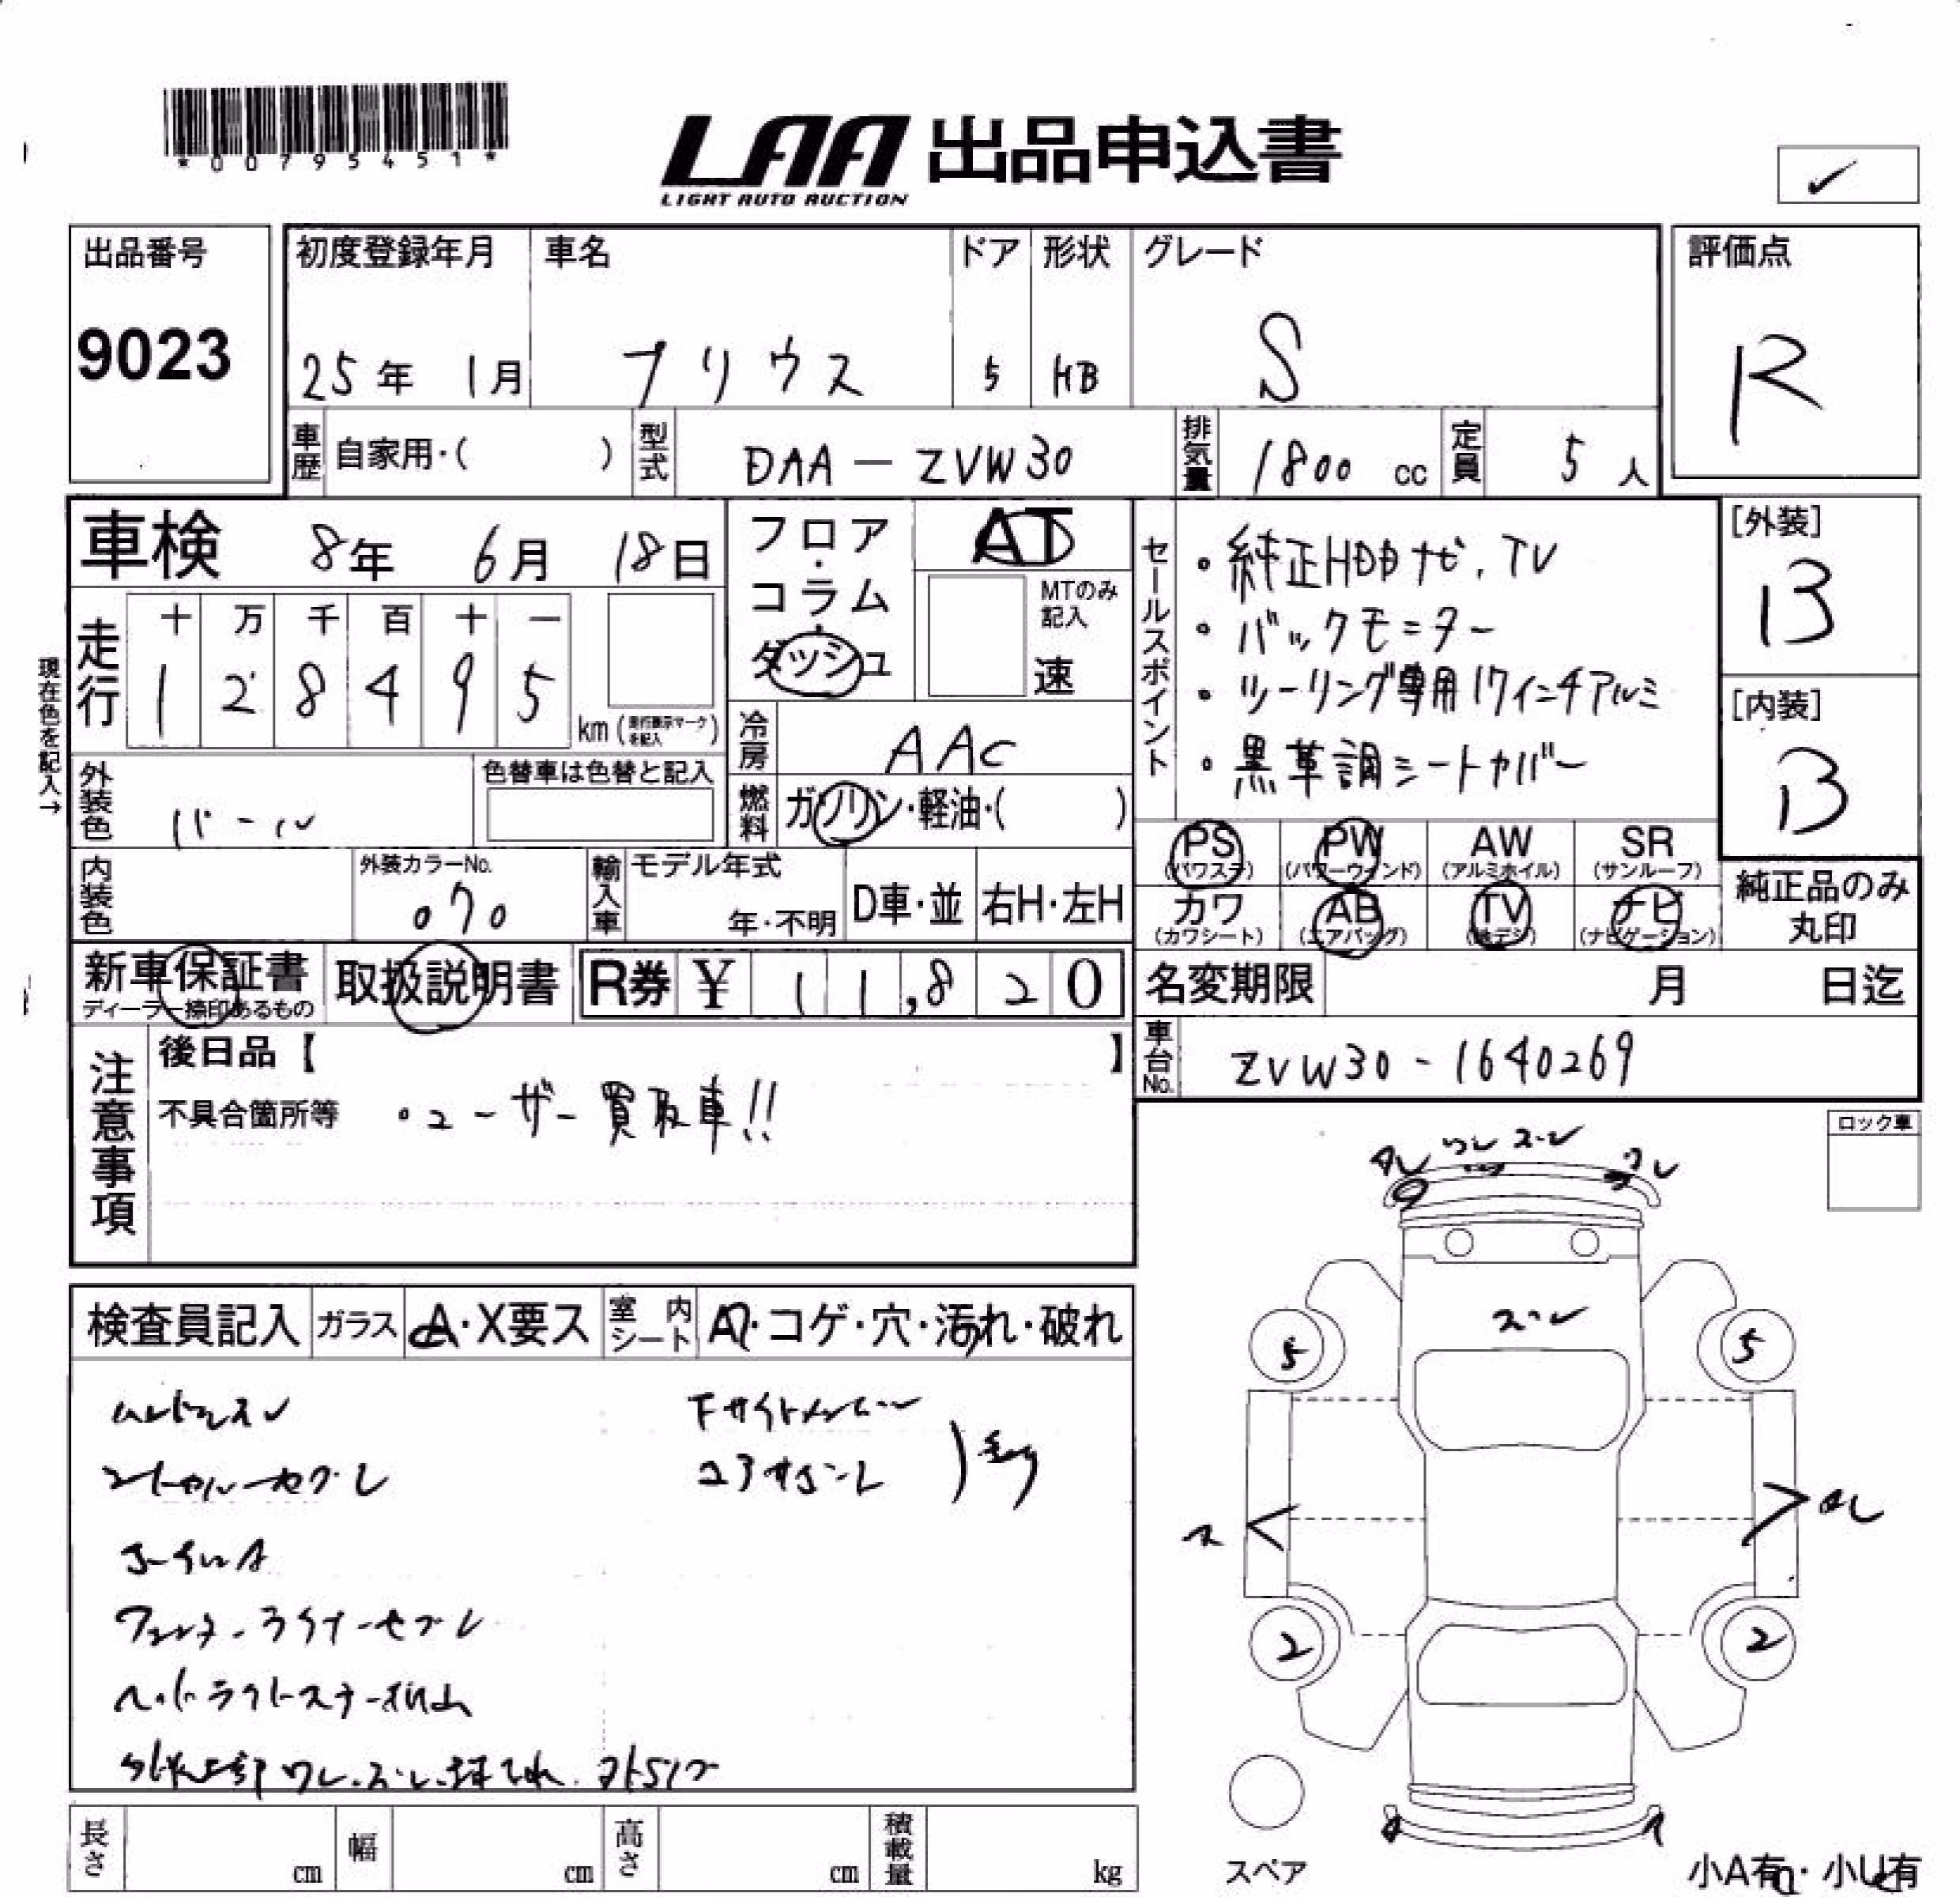 *00795451*
LAA 出品申込書
LIGHT AUTO AUCTION
出品番号
9023
初度登録年月
25年 1月
車名
プリウス
ドア
5
形状
HB
グレード
S
評価点
R
車歴 自家用・( )
型式 DAA-ZVW30
排気量 1800 cc
定員 5 人
車検 8年 6月 18日
現在色を記入→
走行
十 万 千 百 十 一
1 2 8 4 9 5
km (走行表示マークを記入)
フロア・コラム・ダッシュ
AT
MTのみ記入
速
冷房 AAC
燃料 ガソリン・軽油・( )
セールスポイント
・純正HDDナビ、TV
・バックモニター
・ツーリング専用17インチアルミ
・黒革調シートカバー
[外装]
B
[内装]
B
外装色 パール
色替車は色替と記入
内装色
外装カラーNo.
070
輸入車
モデル年式
年・不明
D車・並
右H・左H
PS (パワステ)
PW (パワーウィンド)
AW (アルミホイル)
SR (サンルーフ)
カワ (カワシート)
AB (エアバッグ)
TV (地デジ)
ナビ (ナビゲーション)
純正品のみ丸印
新車保証書
ディーラー捺印あるもの
取扱説明書
R券 ¥ 11,820
名変期限 月 日迄
車台No. ZVW30-1640269
注意事項
後日品【 】
不具合箇所等 ・ユーザー買取車!!
ロック車
検査員記入
ガラス A・X要ス
室内シート A・コゲ・穴・汚れ・破れ
ワレ
スレ
ワレ
スレ
5
5
ス
2
2
スペア
小A有・小U有
長さ cm
幅 cm
高さ cm
積載量 kg